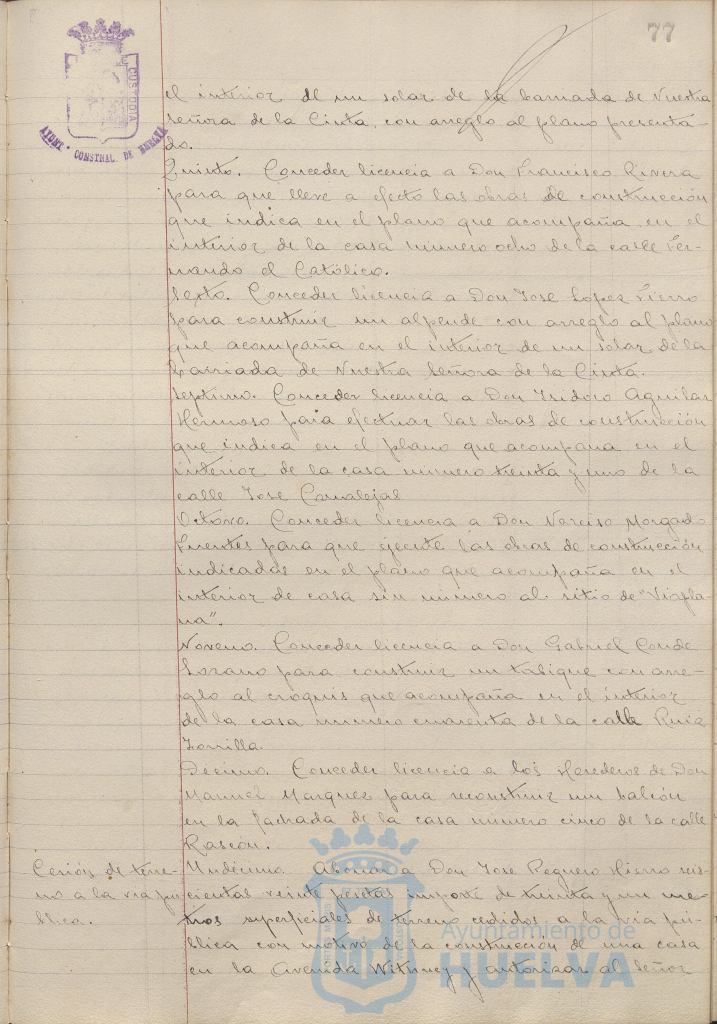 77
CUSTODIA
AYUNT · CONSTNAL. DE HUELVA
el interior de un solar de la barriada de Nuestra
Señora de la Cinta, con arreglo al plano presenta-
do.
Quinto. Conceder licencia a Don Francisco Rivera
para que lleve a efecto las obras de construcción
que indica en el plano que acompaña en el
interior de la casa número ocho de la calle Fer-
nando el Católico.
Sexto. Conceder licencia a Don Jose Lopez Fierro
para construir un alpende con arreglo al plano
que acompaña en el interior de un solar de la
barriada de Nuestra Señora de la Cinta.
Septimo. Conceder licencia a Don Isidoro Aguilar
Hermoso para efectuar las obras de construcción
que indica en el plano que acompaña en el
interior de la casa número treinta y uno de la
calle Jose Canalejas
Octavo. Conceder licencia a Don Narciso Morgado
Fuentes para que ejecute las obras de construcción
indicadas en el plano que acompaña en el
interior de casa sin número al sitio de "Viapla-
na".
Noveno. Conceder licencia a Don Gabriel Conde
Lozano para construir un tabique con arre-
glo al croquis que acompaña en el interior
de la casa número cuarenta de la calle Ruiz
Zorrilla.
Decimo. Conceder licencia a los Herederos de Don
Manuel Marquez para reconstruir un balcón
en la fachada de la casa número cinco de la calle
Rascón.
Cesión de terre-
no a la via pú-
blica.
Undécimo. Abonar a Don Jose Reguero Hierro seis-
cientas veinte pesetas importe de treinta y un me-
tros superficiales de terreno cedidos a la via pú-
blica con motivo de la construccion de una casa
en la Avenida Withney y autorizar al Señor
Ayuntamiento de
HUELVA